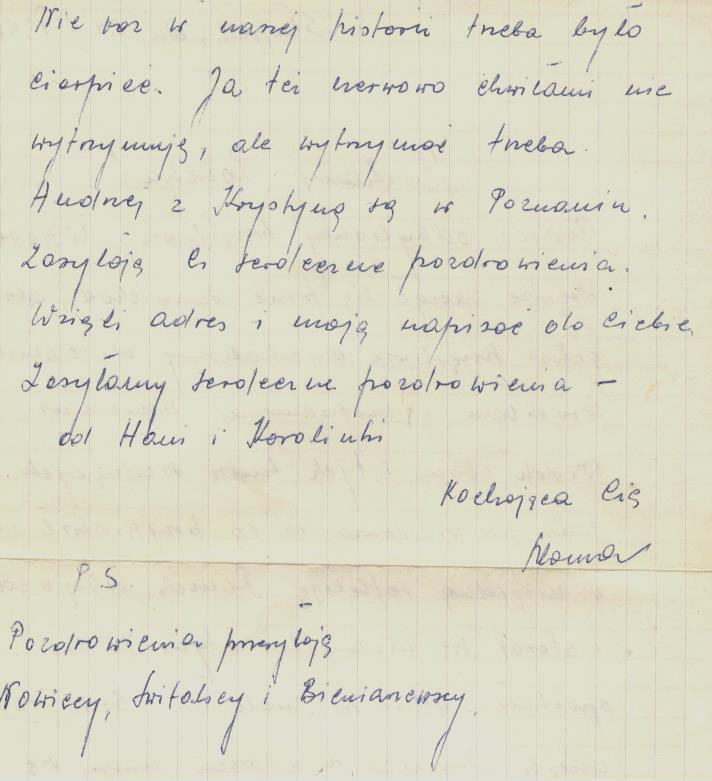 Nie raz w naszej historii trzeba było
cierpieć. Ja też nerwowo chwilami nie
wytrzymuję, ale wytrzymać trzeba.
Andrzej z Krystyną są w Poznaniu.
Zasyłają Ci serdeczne pozdrowienia.
Wzięli adres i mają napisać do Ciebie.
Zasyłamy serdeczne pozdrowienia –
od Hani i Karolinki
Kochająca Cię
P.S.
Pozdrowienia przesyłają
Nowiccy, Świtalscy i Bieniaszewscy.